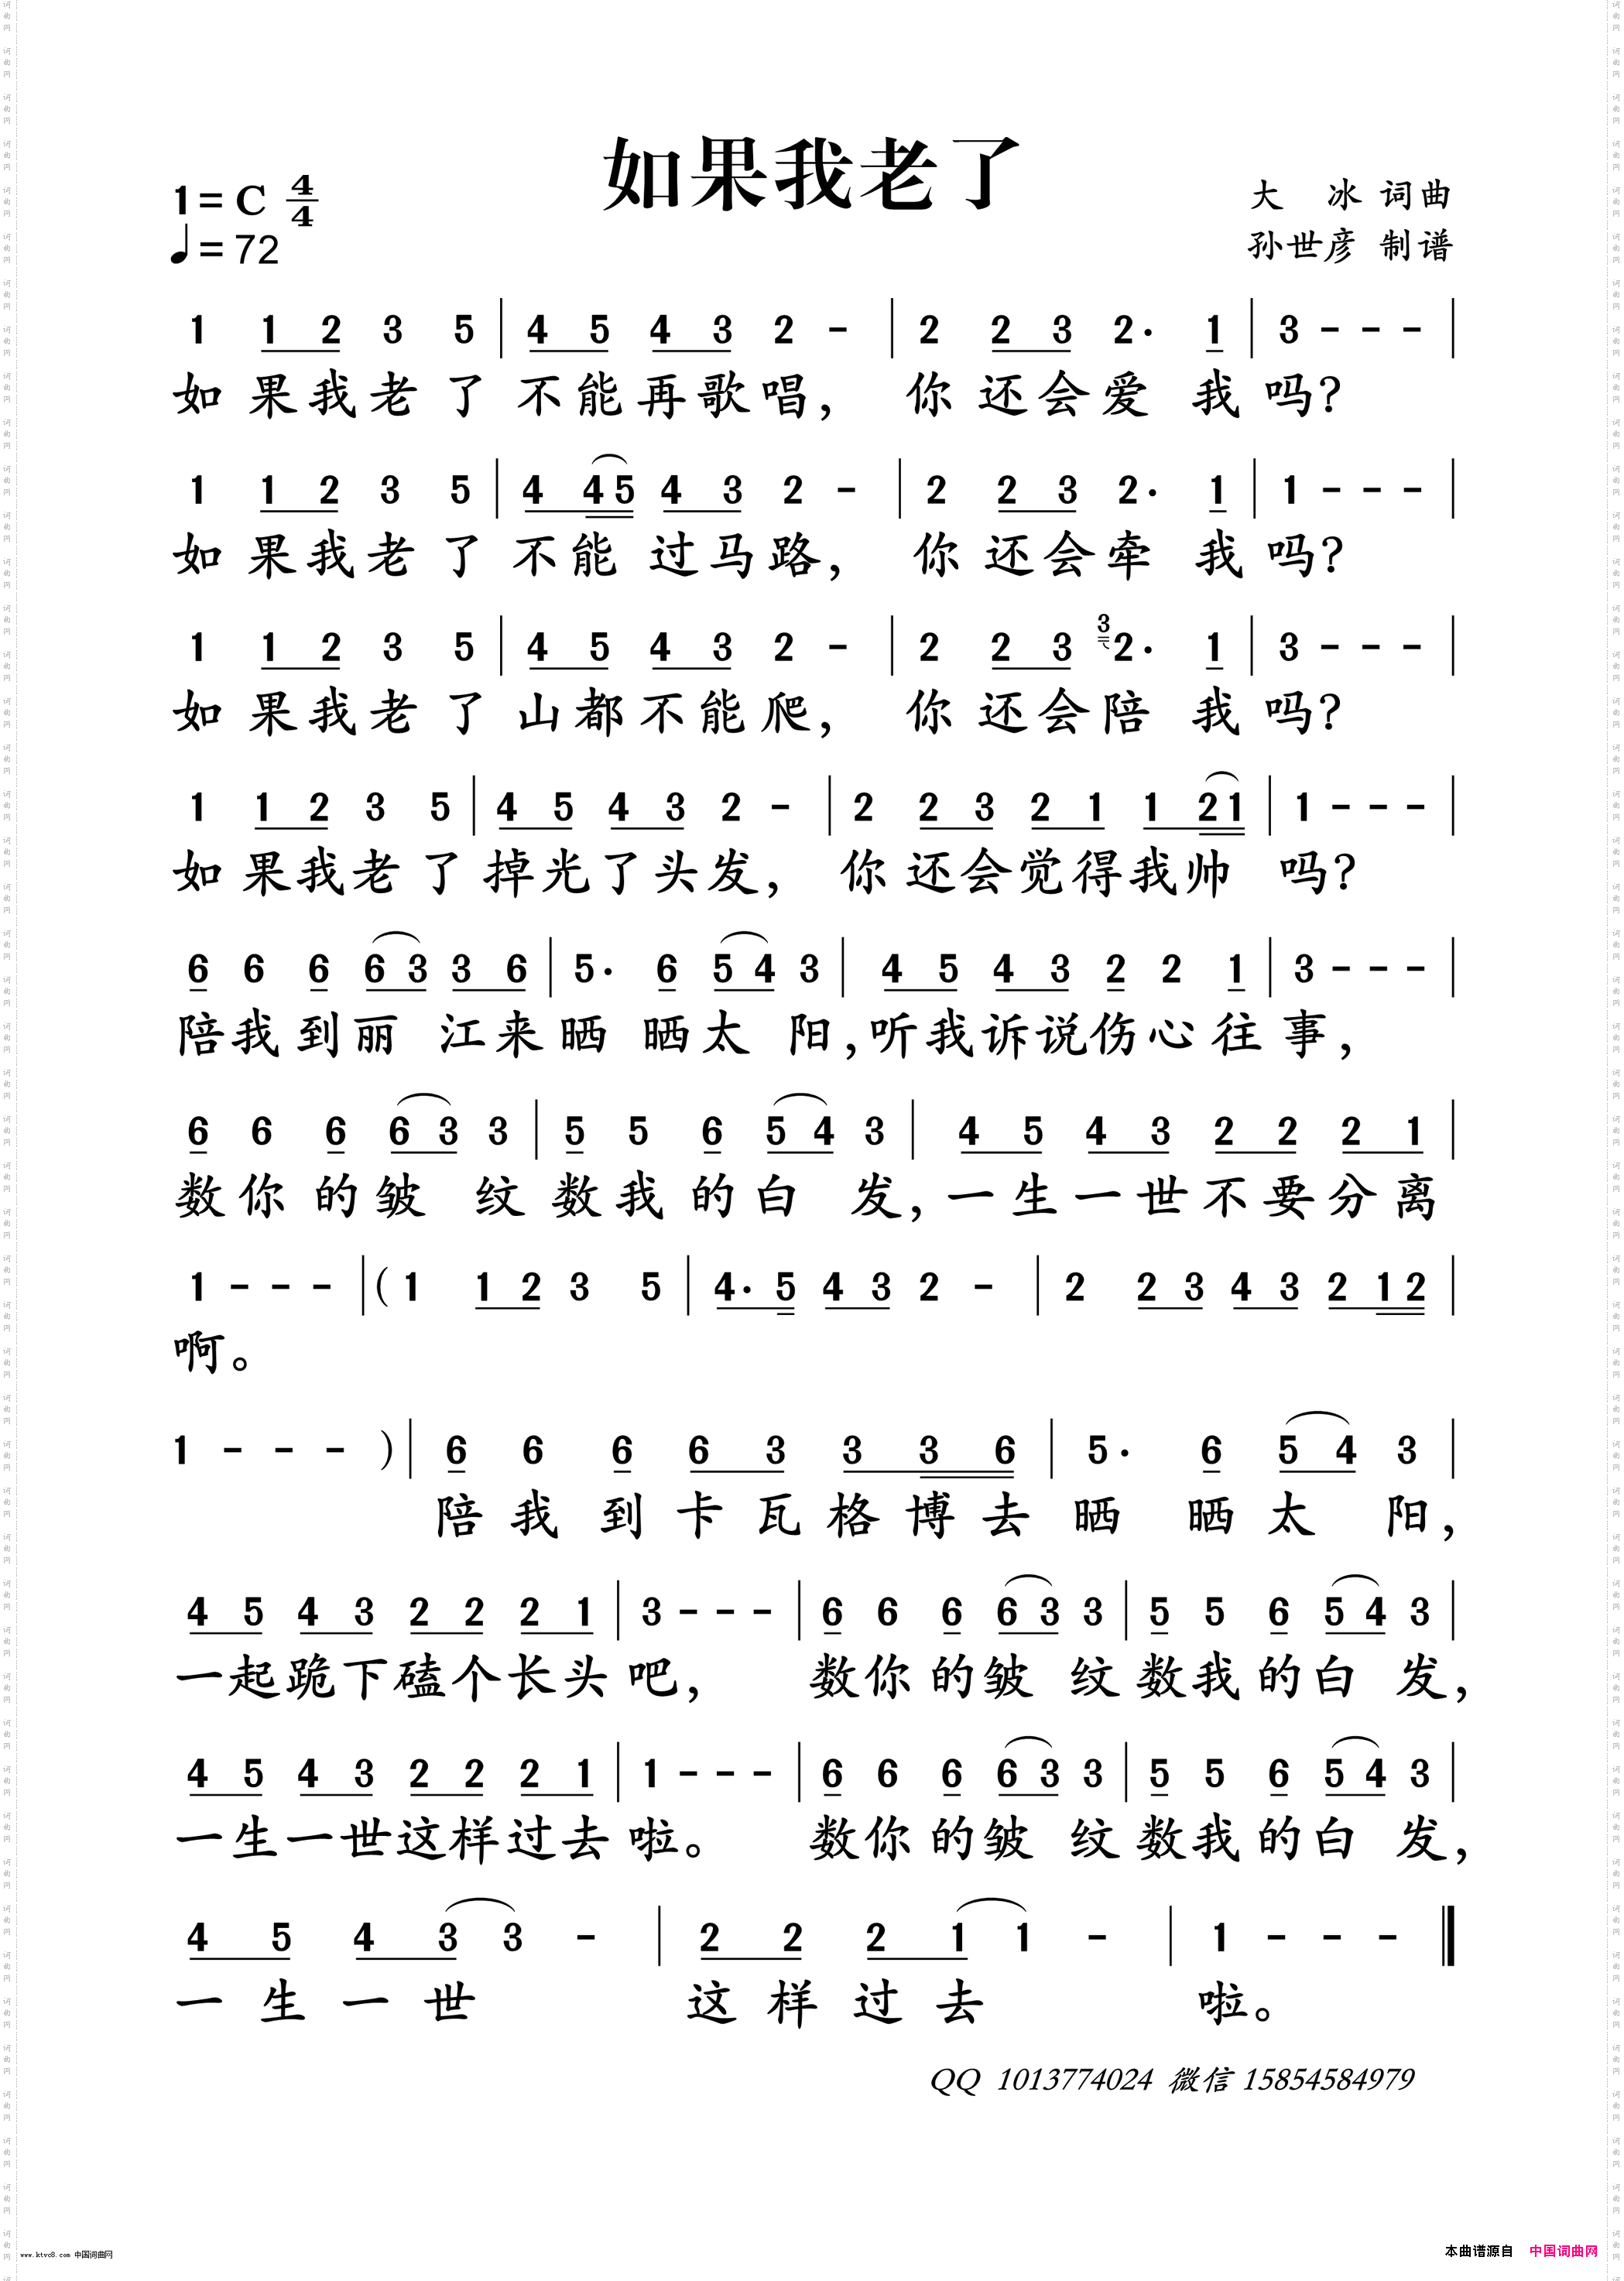 如果我老了
1=C 4/4
大 冰 词曲
♩=72
孙世彦 制谱
1 1 2 3 5 | 4 5 4 3 2 - | 2 2 3 2· 1 | 3 - - - |
如果我老了不能再歌唱, 你还会爱我吗?
1 1 2 3 5 | 4 4 5 4 3 2 - | 2 2 3 2· 1 | 1 - - - |
如果我老了不能过马路, 你还会牵我吗?
1 1 2 3 5 | 4 5 4 3 2 - | 2 2 3 3 2· 1 | 3 - - - |
如果我老了山都不能爬, 你还会陪我吗?
1 1 2 3 5 | 4 5 4 3 2 - | 2 2 3 2 1 1 2 1 | 1 - - - |
如果我老了掉光了头发, 你还会觉得我帅吗?
6 6 6 6 3 3 6 | 5· 6 5 4 3 | 4 5 4 3 2 2 1 | 3 - - - |
陪我到丽江来晒晒太阳,听我诉说伤心往事,
6 6 6 6 3 3 | 5 5 6 5 4 3 | 4 5 4 3 2 2 2 1 |
数你的皱纹数我的白发,一生一世不要分离
1 - - - | ( 1 1 2 3 5 | 4· 5 4 3 2 - | 2 2 3 4 3 2 1 2 |
啊。
1 - - - ) | 6 6 6 6 3 3 3 6 | 5· 6 5 4 3 |
陪我到卡瓦格博去晒晒太阳,
4 5 4 3 2 2 2 1 | 3 - - - | 6 6 6 6 3 3 | 5 5 6 5 4 3 |
一起跪下磕个长头吧, 数你的皱纹数我的白发,
4 5 4 3 2 2 2 1 | 1 - - - | 6 6 6 6 3 3 | 5 5 6 5 4 3 |
一生一世这样过去啦。 数你的皱纹数我的白发,
4 5 4 3 3 - | 2 2 2 1 1 - | 1 - - - ‖
一生一世 这样过去 啦。
QQ 1013774024 微信 15854584979
www.ktvc8.com 中国词曲网
本曲谱源自 中国词曲网